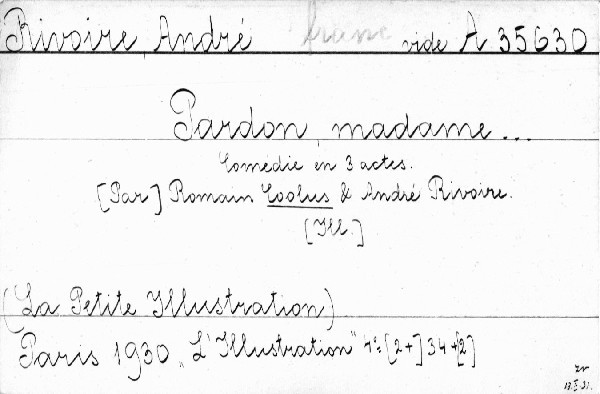 Rivoire, André franc vide A 35630
Pardon, madame...
Comedie en 3 actes.
[Par] Romain Coolus & André Rivoire.
[Ill.]
(La Petite Illustration)
Paris 1930 „L'Illustration" 4° [2+] 34+[2]